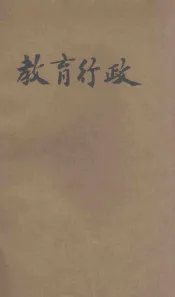 教育行政